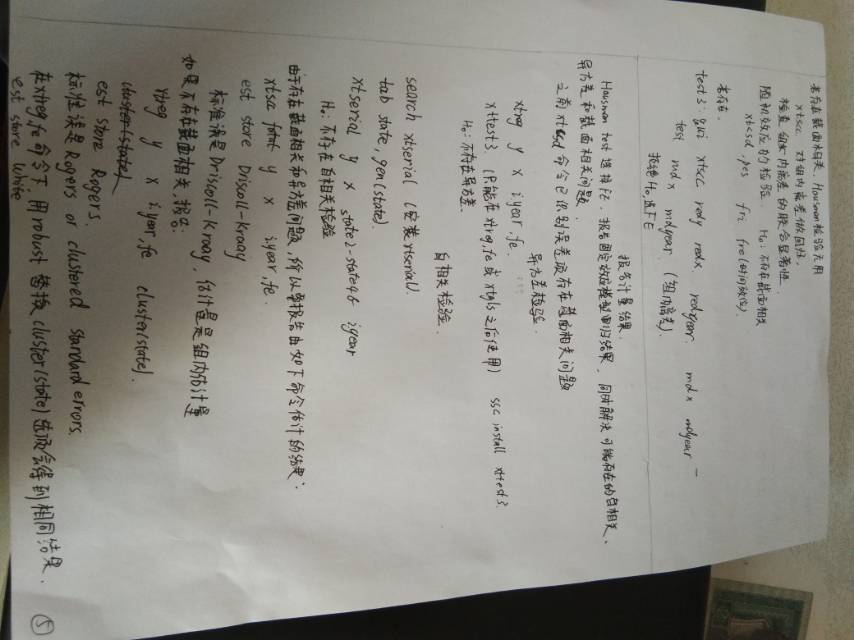 若存在截面相关, Hausman检验无用
xtscc 对组内离差做回归,
检验组内离差的联合显著性.
随机效应的检验. H₀: 不存在截面相关
xtcsd, pes fri fre(时间效应)
若存在:
test3: qui xtscc redy redx redyear mdx mdyear
test mdx mdyear (组内离差).
拒绝H₀,选FE
报告计量结果.
Hausman test 选择FE. 报告固定效应模型回归结果, 同时解决可能存在的自相关、
异方差和截面相关问题.
之前xtcsd命令已识别误差项存在截面相关问题
异方差检验.
xtreg y x i.year, fe.
xttest3 (只能在xtreg,fe或xtgls之后使用) ssc install xttest3.
H₀: 不存在异方差.
自相关检验.
search xtserial (安装xtserial).
tab state, gen(state).
xtserial y x state2-state46 iyear
H₀: 不存在自相关检验
由于存在截面相关和异方差问题, 所以要报告由如下命令估计的结果:
xtscc y x i.year, fe.
est store Driscoll-Kraay
标准误是Driscoll-Kraay, 估计量是组内估计量
如果不存在截面相关, 报告:
xtreg y x iyear, fe cluster(state).
cluster(state)
est store Rogers.
标准误是Rogers or clustered standard errors.
在xtreg, fe命令下用robust替换cluster(state)选项会得到相同结果.
est store White
⑤